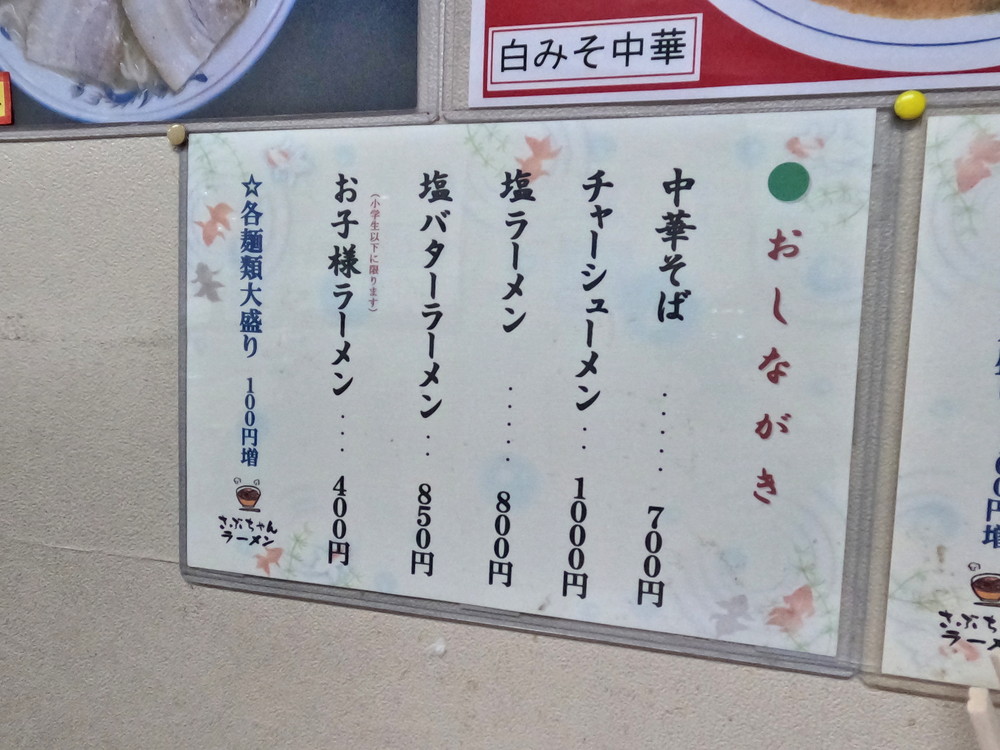 白みそ中華
おしながき
中華そば ・・・・・ 700円
チャーシューメン ・・ 1000円
塩ラーメン ・・・・・ 800円
塩バターラーメン ・・ 850円
(小学生以下に限ります)
お子様ラーメン ・・・ 400円
☆各麺類大盛り 100円増
さぶちゃん
ラーメン
円増
さぶち
ラー